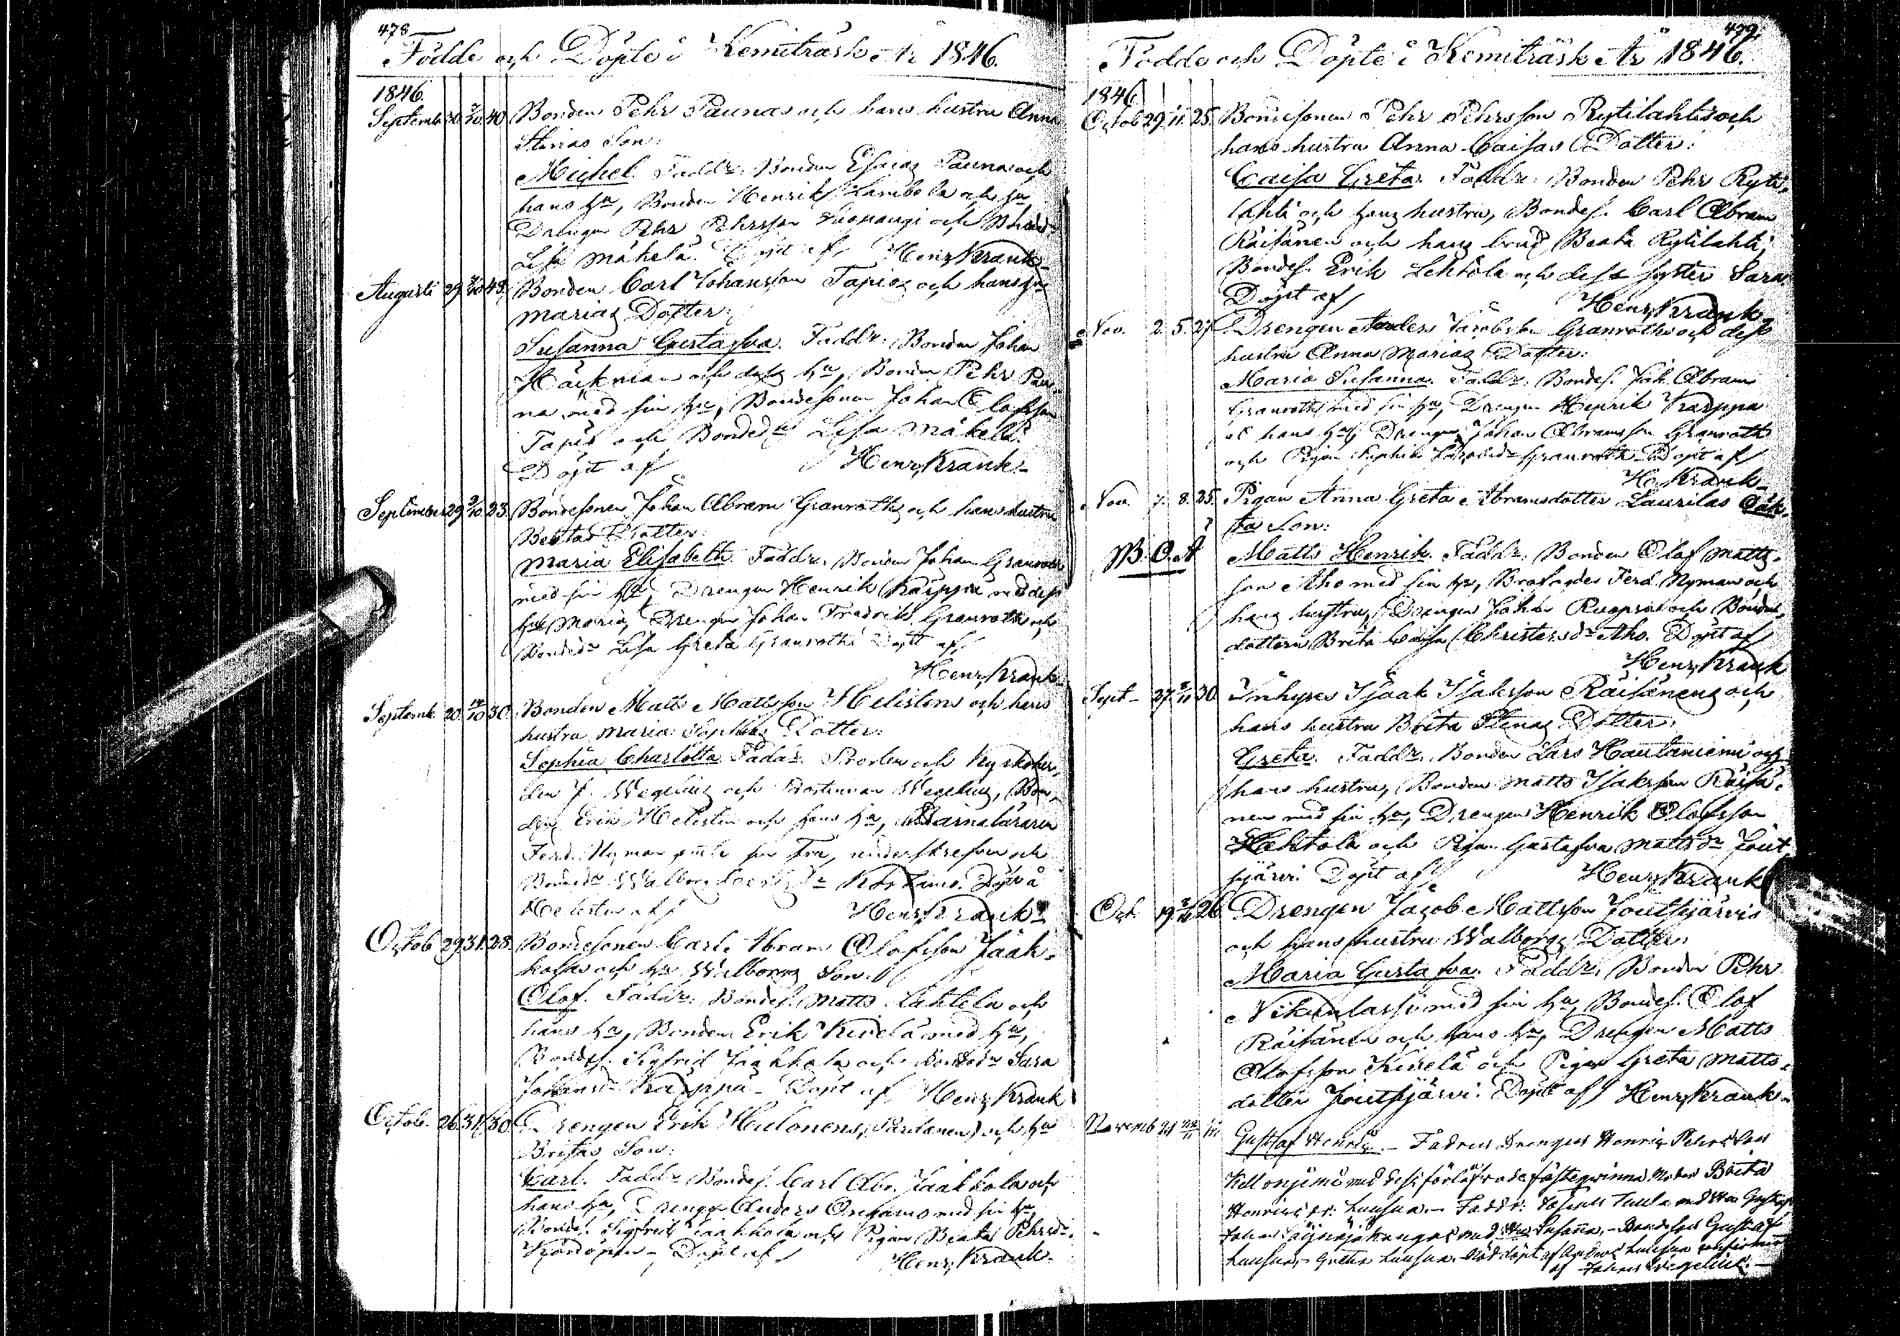 478
Födde och Döpte i Kemiträsk År 1846.
1846.
Septemb. 30. 40 Bonden Pehr Paunas och hans hustru Anna
Stinas Son:
Michel. Faddr. Bonden Esaias Pauna och
hans hu, Bonden Henrik och hu,
Drengen Pehr Pehrsson och
Lisa Mäkelä. Döpt af Henr. Krank
Augusti 29 48 Bonden Carl Johansson Tapios och hans hu
Marias Dotter:
Susanna Gustafva. Faddr. Bonden Johan
och dess hu, Bonden Pehr Pau-
na med sin hu, Bondesonen Johan Olofsson
Tapio och Bonded. Lisa Mäkelä.
Döpt af Henr. Krank
September 29 2/10 23. Bondesonen Johan Abram Granroths och hans hustru
Beatas Dotter:
Maria Elisabeth. Faddr. Bonden Johan Granroth
med sin hu, Drengen Henrik Karppa med dess
hu Maria, Drengen Johan Fredrik Granroth och
Bonded. Lisa Greta Granroth. Döpt af
Henr. Krank
Septemb. 20. 30. Bonden Matts Mattsson Helistens och hans
hustru Maria Sophias Dotter:
Sophia Charlotta. Faddr. Prosten och Kyrkoher-
den J. Wegelius och Prostinnan Wegelius, Bon-
den Erik Helisten och hans hu, Barnaläraren
Ferd. Nyman med sin Fru, underskrefven och
Bonded. Walborg Döpt å
Helisten af Henr. Krank
Octob. 29 31. 28. Bondesonen Carl Abram Olofsson Jaak-
kolas och hu Walborgs Son:
Olof. Faddr. Bondes. Matts Lahtela och
hans hu, Bonden Erik Kivelä med hu,
Bondes. Sigfrid Jaakkola och Sara
Johansd. Karppa. Döpt af Henr. Krank
Octob. 26. 31. 30. Drengen Erik Hulonens och hu
Britas Son:
Carl. Faddr. Bondes. Carl Abr. Jaakkola och
hans hu, Drengen Anders med sin hu,
Bondes. Sigfrid Jaakkola och Pigan Beata Pehrsd.
Döpt af Henr. Krank
479.
Födde och Döpte i Kemiträsk År 1846.
1846
Octob. 29. 1/11. 25. Bondesonen Pehr Pehrsson Rytilahtis och
hans hustru Anna Caisas Dotter:
Caisa Greta. Faddr. Bonden Pehr Ryti-
lahti och hans hustru, Bondes. Carl Abram
Räisänen och hans brud Beata Rytilahti,
Bondes. Erik Lehtola och dess syster Sara.
Döpt af Henr. Krank
Nov. 2. 5. 27 Drengen Anders Jacobsson Granroths och dess
hustru Anna Marias Dotter:
Maria Susanna. Faddr. Bondes. Joh. Abram
Granroth med sin hu, Drengen Henrik Karppa
och hans hu, Drengen Johan Abramsson Granroth
och Pigan Sophia Granroth. Döpt af
H. Krank
Nov. 7. 8. 25. Pigan Anna Greta Abramsdotter Laurilas Oäk-
ta Son:
Matts Henrik. Faddr. Bonden Olof Matts-
son Aho med sin hu, Ferd. Nyman och
hans hustru, Drengen Johan och Bonde-
dottern Brita Caisa Christersd. Aho. Döpt af
Henr. Krank
Sept. 27. 30. Inhyses Isaak Isaksson Räisänens och
hans hustru Brita Stinas Dotter:
Greta. Faddr. Bonden Lars Hautaniemi och
hans hustru, Bonden Matts Isaksson Räisä-
nen med sin hu, Drengen Henrik Olofsson
Lehtola och Pigan Gustafva Mattsdr Jout-
sijärvi. Döpt af Henr. Krank
Oct. 19 26 Drengen Jacob Mattsson Joutsijärvis
och hans hustru Walborgs Dotter:
Maria Gustafva. Faddr. Bonden Pehr
Nikunlassi med sin hu, Bondes. Olof
Räisänen och hans hu, Drengen Matts
Olofsson Kivelä och Pigan Greta Matts-
dotter Joutsijärvi. Döpt af Henr. Krank
Novemb 21 Gustaf Henrik. Fadren Drengen Henrik Pehrsson
med dess förlofvade fästeqvinna Brita
Henriksdr. Luusua. Faddr. med Hu
Johan med Hu Susanna, Bondeson Gustaf
Luusua, Greta Luusua. Nöddöpt af Luusua
af Johan Wegelius.